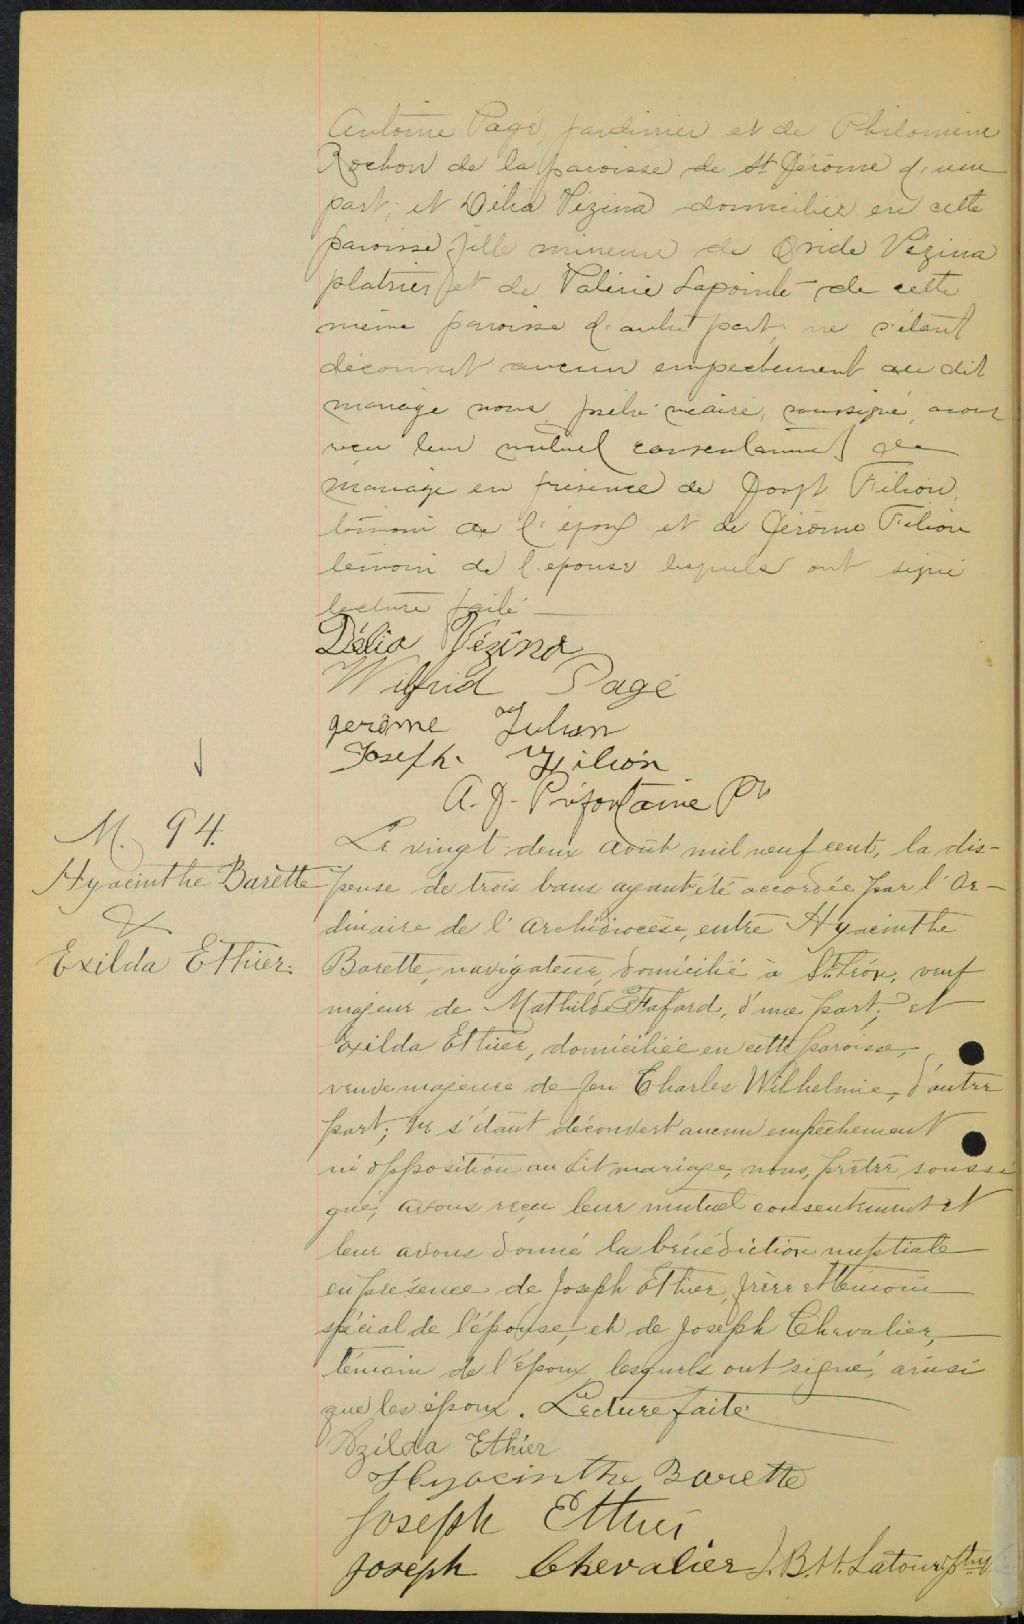 Antoine Pagé, jardinier et de Philomène
Rochon de la paroisse de St Jérôme d'une
part; et Délia Vézina domiciliée en cette
paroisse fille mineure de Ovide Vézina
platrier et de Valérie Lapointe de cette
même paroisse d'autre part, ne s'étant
découvert aucun empechement au dit
mariage nous prêtre vicaire, soussigné, avons
reçu leur mutuel consentement de
mariage en présence de Joseph Filion,
témoin de l'époux et de Jérôme Filion
témoin de l'epouse lesquels ont signé
lecture faite
Délia Vézina
Wilfrid Pagé
Jerôme Filion
Joseph Filion
A. J. Préfontaine Ptr
M. 94.
Hyacinthe Barette
&
Exilda Ethier.
Le vingt-deux Août mil neuf cent, la dis-
pense de trois bans ayant été accordée par l'Or-
dinaire de l'Archidiocèse, entre Hyacinthe
Barette, navigateur, domicilié à St. Léon, veuf
majeur de Mathilde Fafard, d'une part; et
Exilda Ethier, domiciliée en cette paroisse,
veuve majeure de feu Charles Wilhelmie, d'autre
part; Ne s'étant découvert aucun empêchement
ni opposition au dit mariage, nous, prêtre soussi
gné, avons reçu leur mutuel consentement et
leur avons donné la bénédiction nuptiale
en présence de Joseph Ethier, frère et témoin
spécial de l'épouse, et de Joseph Chevalier,
témoin de l'époux lesquels ont signé, ainsi
que les époux. Lecture faite
Azilda Ethier
Hyacinthe Barette
Joseph Ethier
Joseph Chevalier J. B. H. Latour, ptre